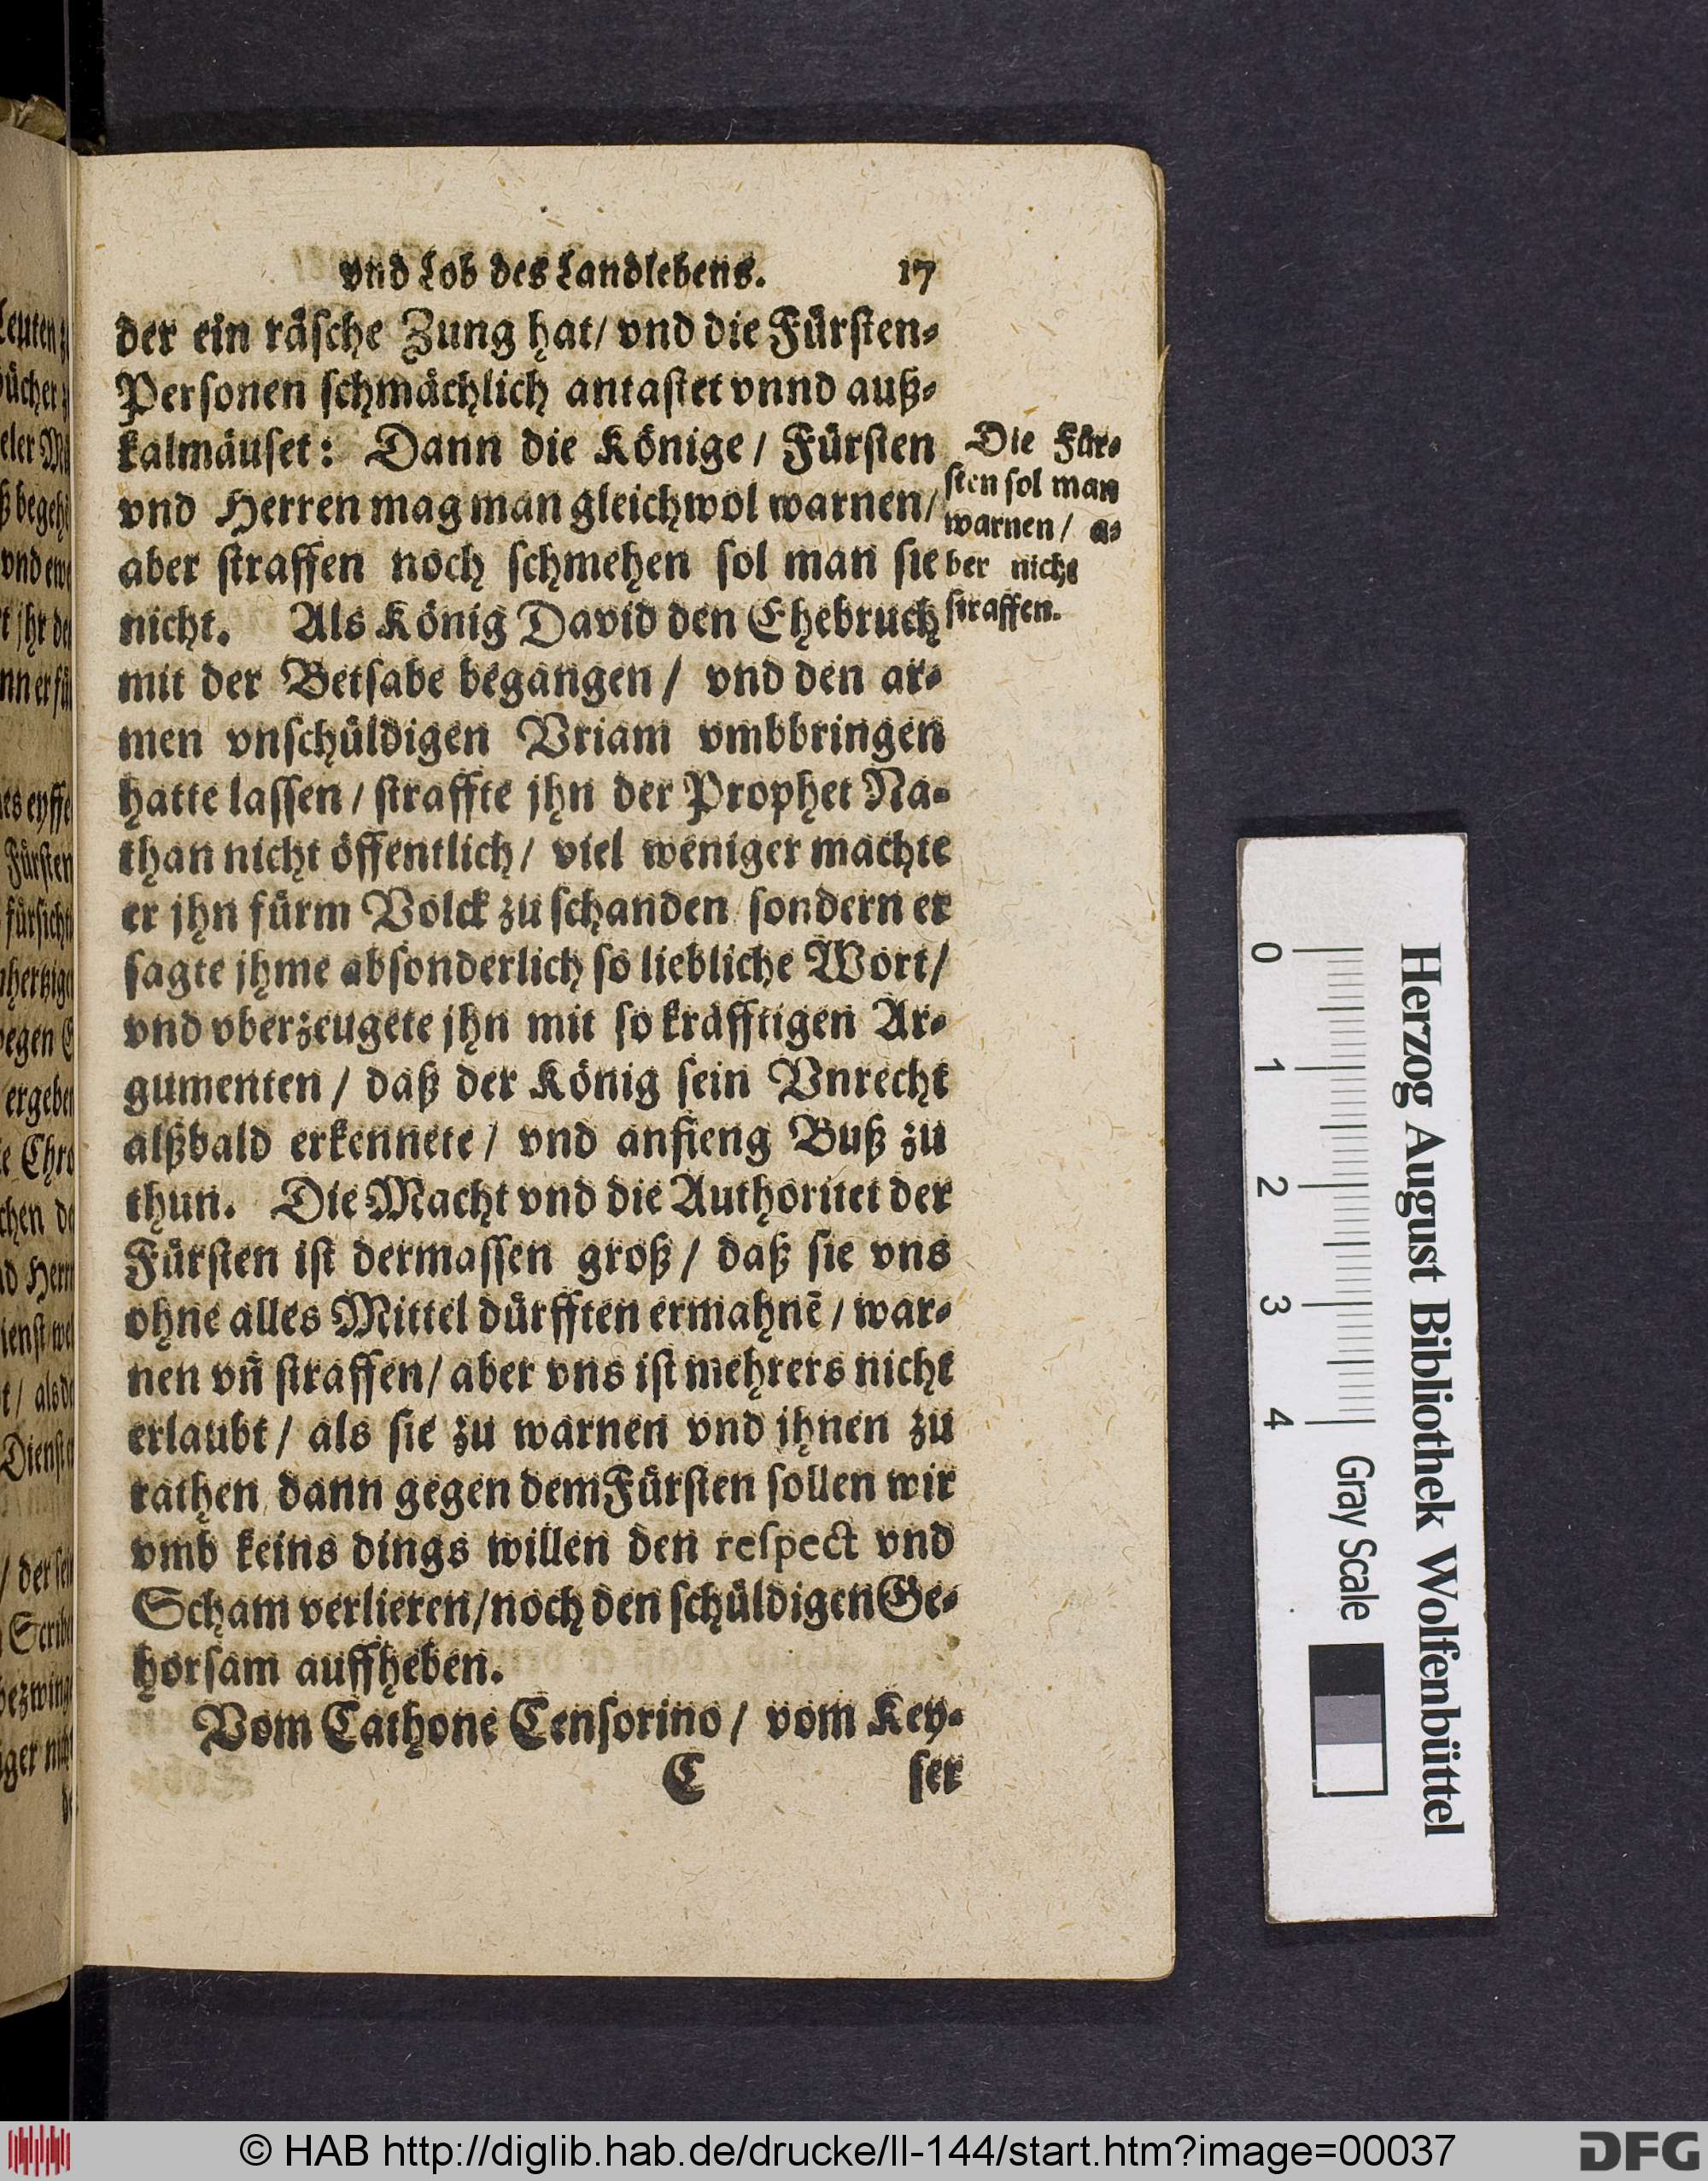 vnd Lob des Landlebens. 17
der ein räſche Zung hat/ vnd die Fürſten⸗
Perſonen ſchmächlich antaſtet vnnd auß⸗
kalmäuſet: Dann die Könige / Fürſten
vnd Herren mag man gleichwol warnen/
aber ſtraffen noch ſchmehen ſol man ſie
nicht. Als König David den Ehebruch
mit der Betſabe begangen / vnd den ar⸗
men vnſchüldigen Vriam vmbbringen
hatte laſſen / ſtraffte jhn der Prophet Na⸗
than nicht öffentlich / viel weniger machte
er jhn fürm Volck zu ſchanden ſondern er
ſagte jhme abſonderlich ſo liebliche Wort/
vnd vberzeugete jhn mit ſo kräfftigen Ar⸗
gumenten / daß der König ſein Vnrecht
alßbald erkennete / vnd anfieng Buß zu
thun. Die Macht vnd die Authoritet der
Fürſten iſt dermaſſen groß / daß ſie vns
ohne alles Mittel dürfften ermahnē / war⸗
nen vñ ſtraffen / aber vns iſt mehrers nicht
erlaubt / als ſie zu warnen vnd jhnen zu
rathen dann gegen dem Fürſten ſollen wir
vmb keins dings willen den reſpect vnd
Scham verlieren/noch den ſchüldigen Ge⸗
horſam auffheben.
Vom Cathone Cenſorino / vom Key⸗
C ſer
Die Für⸗
ſten ſol man
warnen / a⸗
ber nicht
ſtraffen.
Herzog August Bibliothek Wolfenbüttel
0 1 2 3 4 Gray Scale
© HAB http://diglib.hab.de/drucke/ll-144/start.htm?image=00037
DFG